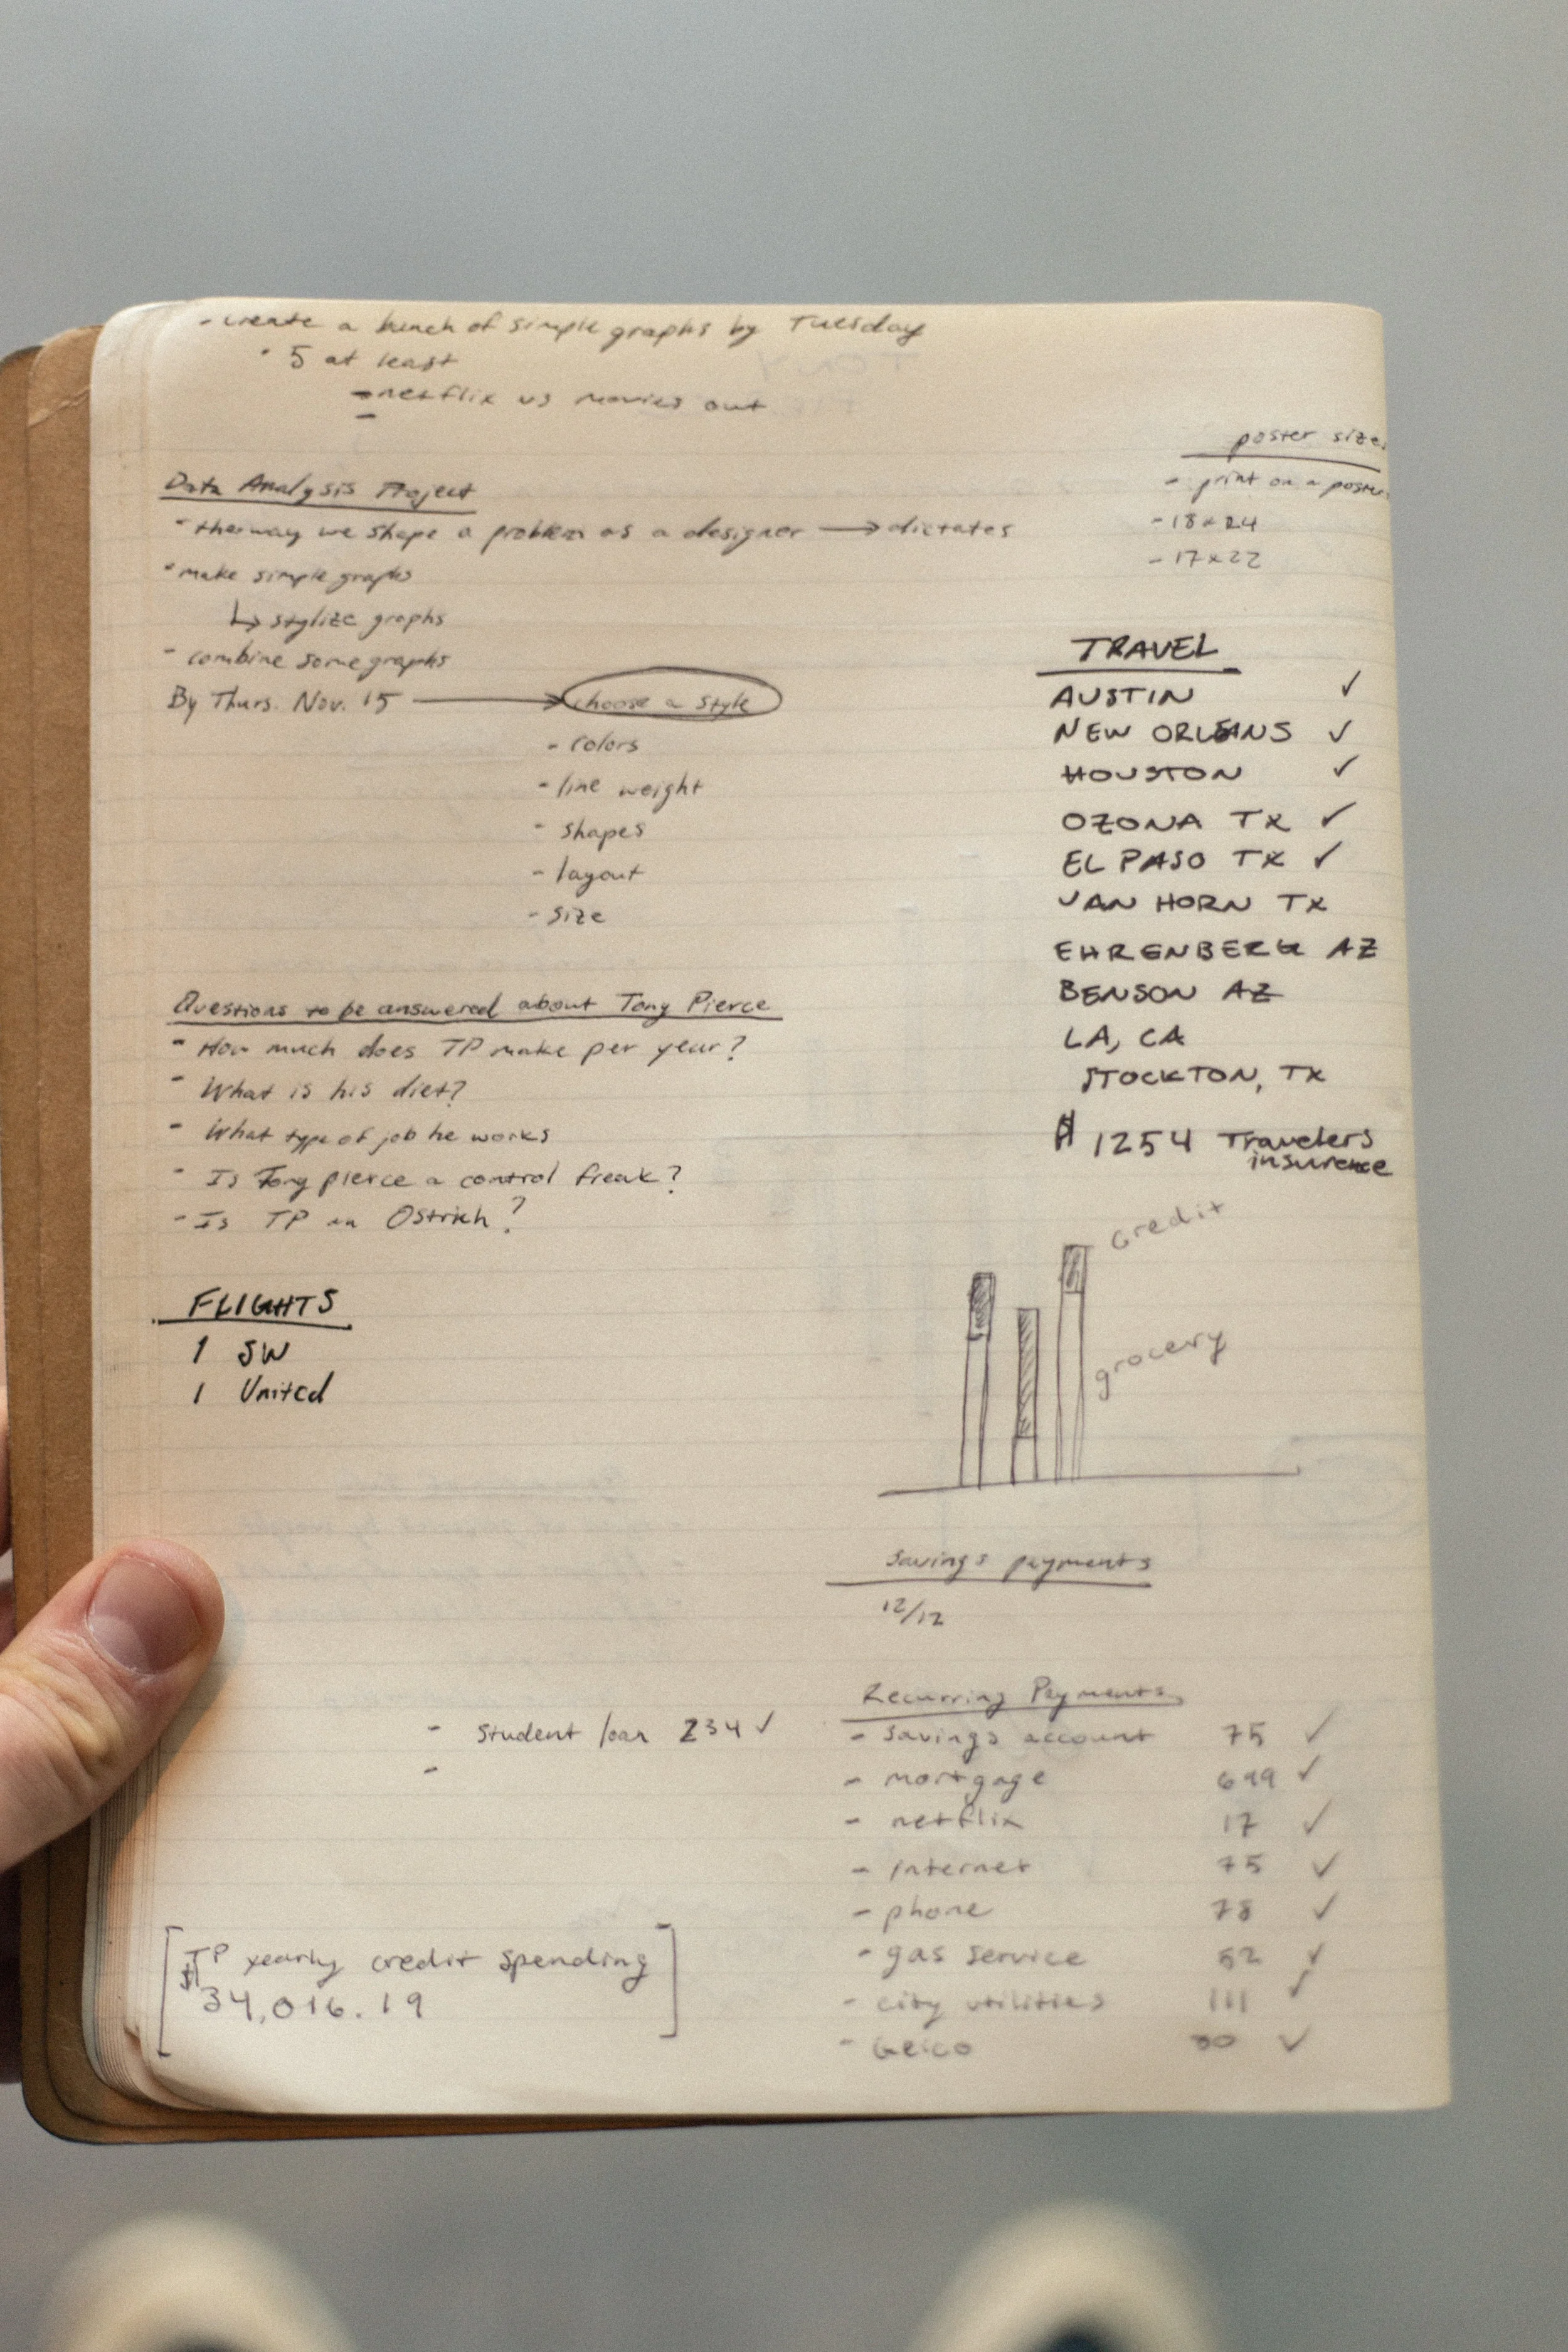 - create a bunch of simple graphs by Tuesday
• 5 at least
- netflix vs movies out
-
poster size
- print on a poster
- 18x24
- 17x22
Data Analysis Project
- the way we shape a problem as a designer → dictates
• make simple graphs
↳ stylize graphs
- combine some graphs
By Thurs. Nov. 15 → choose a style
- colors
- line weight
- shapes
- layout
- size
TRAVEL
AUSTIN ✓
NEW ORLEANS ✓
HOUSTON ✓
OZONA TX ✓
EL PASO TX ✓
VAN HORN TX
EHRENBERG AZ
BENSON AZ
LA, CA
STOCKTON, TX
$ 1254 Travelers
insurence
Questions to be answered about Tony Pierce
- How much does TP make per year?
- What is his diet?
- What type of job he works
- Is Tony pierce a control freak?
- Is TP an Ostrich?
FLIGHTS
1 SW
1 United
credit
grocery
savings payments
12/12
- student loan 234 ✓
-
Recurring Payments
- savings account 75 ✓
- mortgage 699 ✓
- netflix 17 ✓
- internet 75 ✓
- phone 78 ✓
- gas service 52 ✓
- city utilities 111 ✓
- Geico ✓
[TP yearly credit spending
$34,016.19]